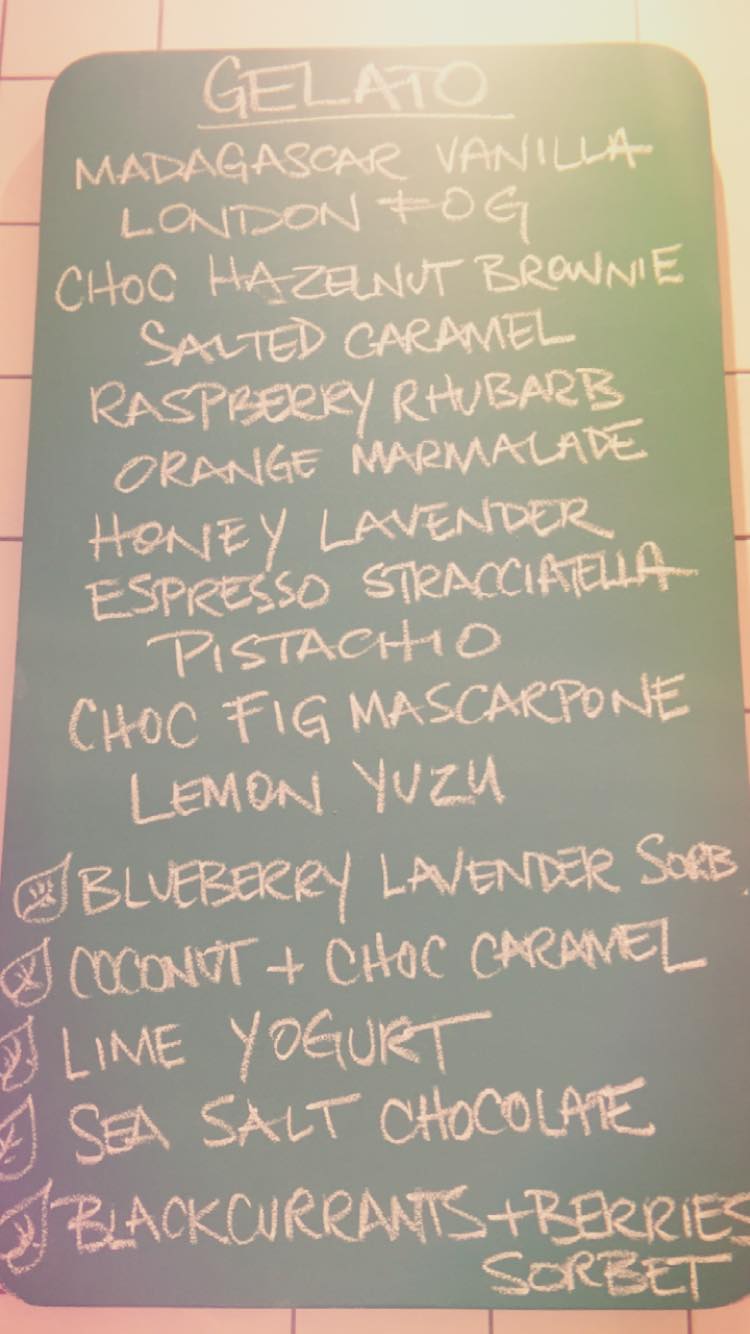 GELATO
MADAGASCAR VANILLA
LONDON FOG
CHOC HAZELNUT BROWNIE
SALTED CARAMEL
RASPBERRY RHUBARB
ORANGE MARMALADE
HONEY LAVENDER
ESPRESSO STRACCIATELLA
PISTACHIO
CHOC FIG MASCARPONE
LEMON YUZU
BLUEBERRY LAVENDER SORB.
COCONUT + CHOC CARAMEL
LIME YOGURT
SEA SALT CHOCOLATE
BLACKCURRANTS + BERRIES
SORBET